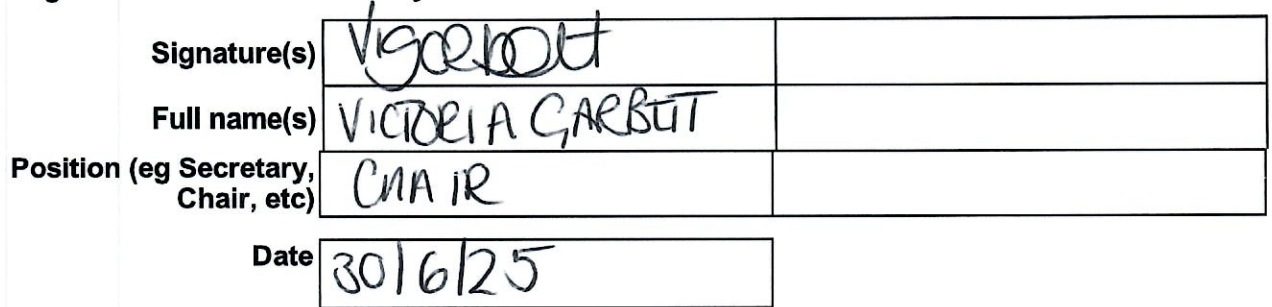 Signature(s)
Full name(s) VICTORIA GARBUTT
Position (eg Secretary, Chair, etc) CHAIR
Date 30/6/25